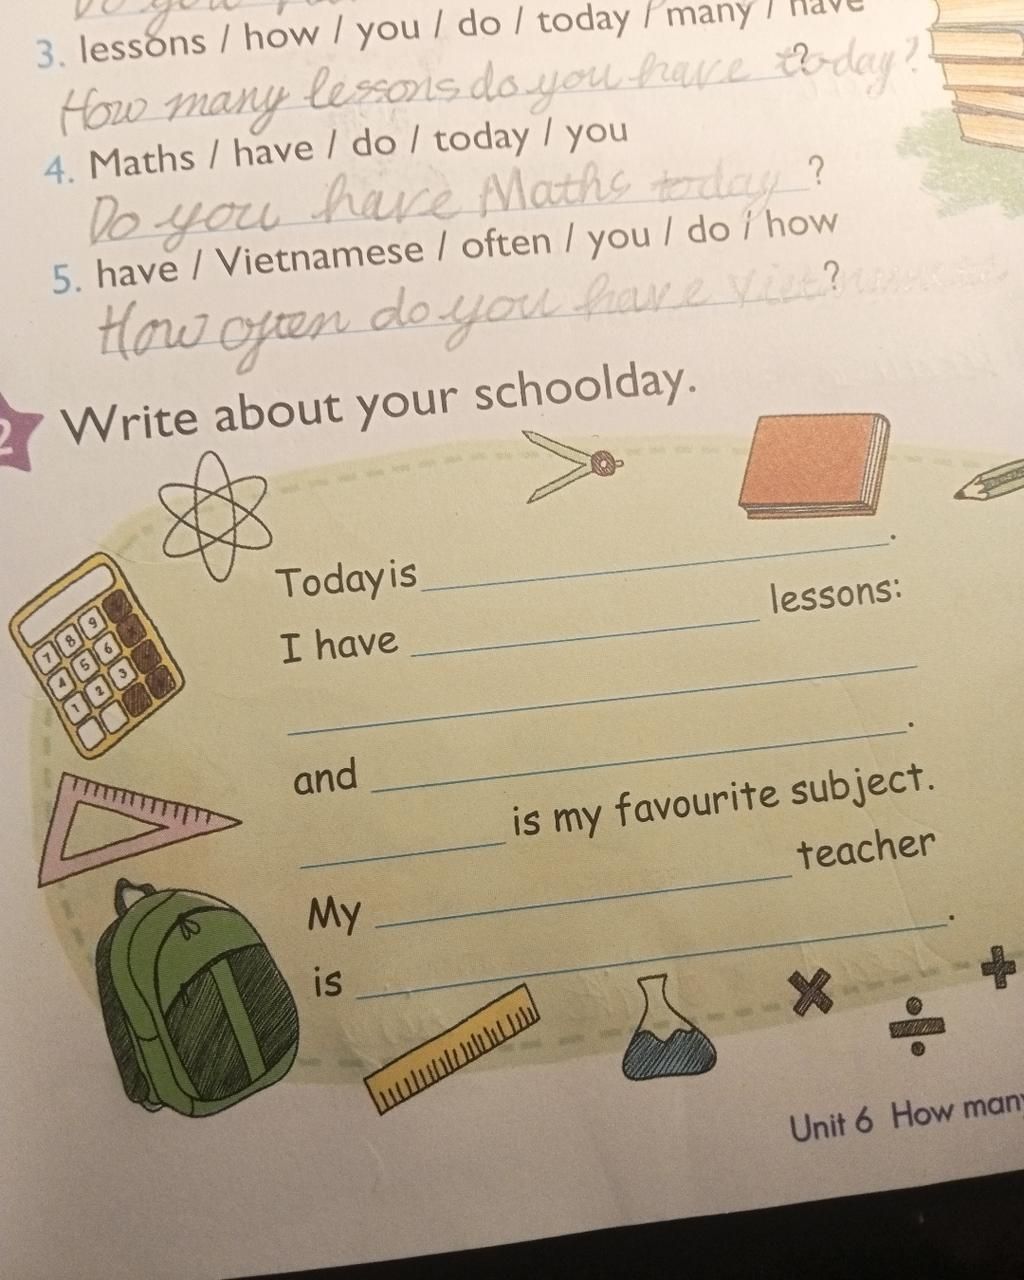 Do you
3. lessons / how / you / do / today / many / have
How many lessons do you have today?
?
4. Maths / have / do / today / you
Do you have Maths today ?
5. have / Vietnamese / often / you / do / how
How often do you have Vietnamese ?
2 Write about your schoolday.
7 8 9
4 5 6
1 2 3
Today is .
I have lessons:
.
and .
is my favourite subject.
My teacher
is .
Unit 6 How many